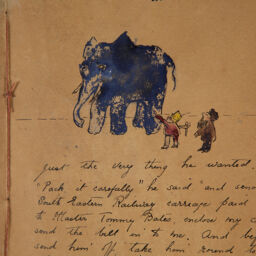 just the very thing he wanted.
"Pack it carefully" he said "and send
South Eastern Railway carriage paid
to Master Tommy Bates, enclose my c
send the bill in to me. And be
send him off take him round to